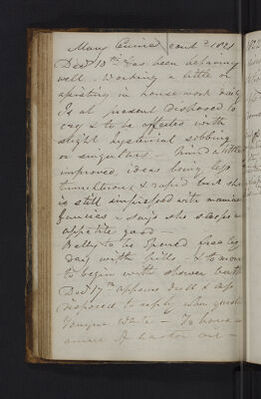 Mary contd 1821
Decr 10th Has been behaving
well. Working a little or
assisting in housework daily
Is at present disposed to
cry & to be affected with
slight hysterical sobbing
or singultus. Mind a little
improved, ideas being less
tumultuous & rapid but she
is still impressed with
fancies & says she sleeps
appetite good —
Belly to be opened freely
day with pills & to
to begin with shower bath
Decr 17th appears dull &
disposed to reply when
Tongue White — To have
ounce of castor oil —